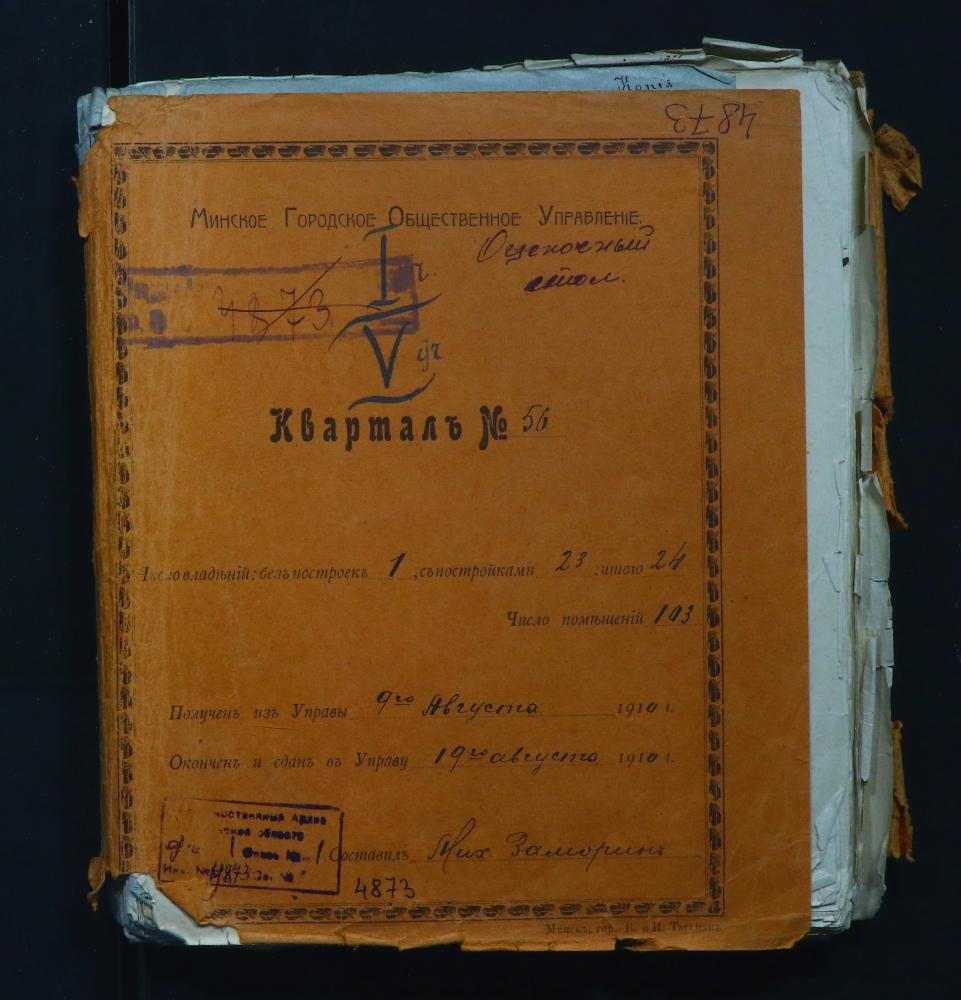 Копія
4873
Минское Городское Общественное Управленіе.
Оценочный
стол.
I ч.
4873
V уч
Кварталъ № 56
Число владѣній: безъ построекъ 1, съ постройками 23, итого 24
Число помѣщеній 103
Полученъ изъ Управы 9го Августа 1910 г.
Оконченъ и сданъ въ Управу 19го августа 1910 г.
Архив
области
Опись № 1
Составилъ Мих. Заморинъ
4873
Минскъ,